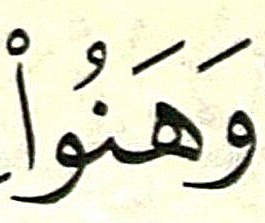 وَهَنُواْ